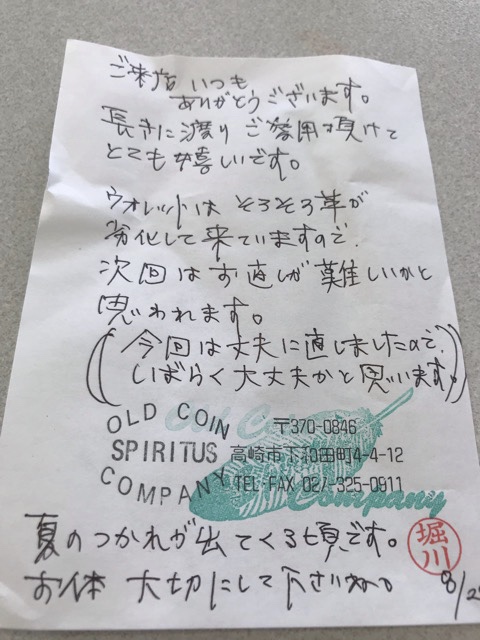 ご来店 いつも
ありがとうございます。
長きに渡り ご愛用頂けて
とても嬉しいです。
ウォレットは そろそろ革が
劣化して来ていますので、
次回はお直しが 難しいかと
思われます。
(今回は丈夫に直しましたので、
しばらく大丈夫かと思います。)
OLD COIN
SPIRITUS
COMPANY
〒370-0846
高崎市下和田町4-4-12
TEL・FAX 027-325-0911
Company
夏のつかれが出てくる頃です。
お体 大切にして下さいね。
堀川